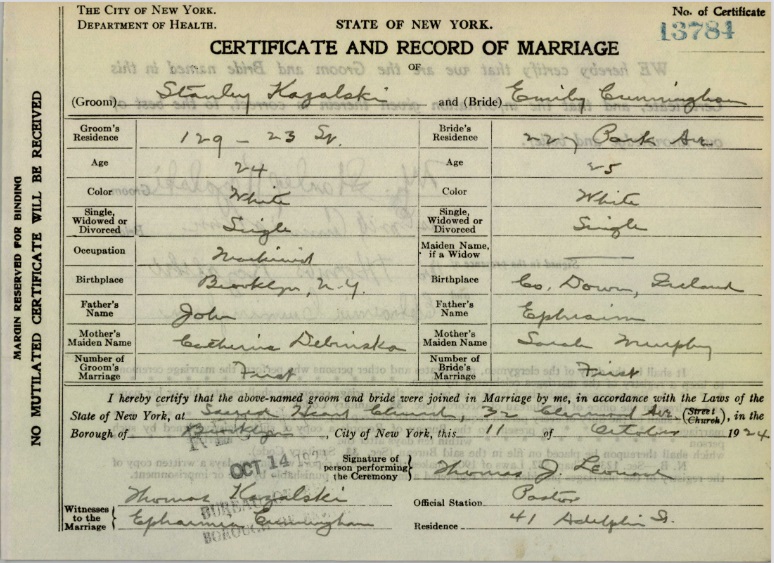 THE CITY OF NEW YORK.
DEPARTMENT OF HEALTH.
STATE OF NEW YORK.
No. of Certificate
13784
CERTIFICATE AND RECORD OF MARRIAGE
OF
(Groom) Stanley Kazalski and (Bride) Emily Cunningham
Groom's Residence 129 - 23 St. Bride's Residence 227 Park Ave
Age 24 Age 25
Color White Color White
Single, Widowed or Divorced Single Single, Widowed or Divorced Single
Occupation Machinist Maiden Name, if a Widow
Birthplace Brooklyn, N.Y. Birthplace Co. Down, Ireland
Father's Name John Father's Name Ephraim
Mother's Maiden Name Catherine Debinska Mother's Maiden Name Sarah Murphy
Number of Groom's Marriage First Number of Bride's Marriage First
I hereby certify that the above-named groom and bride were joined in Marriage by me, in accordance with the Laws of the
State of New York, at Sacred Heart Church, 32 Clermont Ave. (Street Church), in the
Borough of Brooklyn, City of New York, this 11 of October 1924
OCT 14
Signature of person performing the Ceremony Thomas J. Leonard
Witnesses to the Marriage Thomas Kazalski
Official Station Pastor
Cunningham
Residence 41 Adelphi St.
BUREAU
BOROUGH OF
MARGIN RESERVED FOR BINDING
NO MUTILATED CERTIFICATE WILL BE RECEIVED